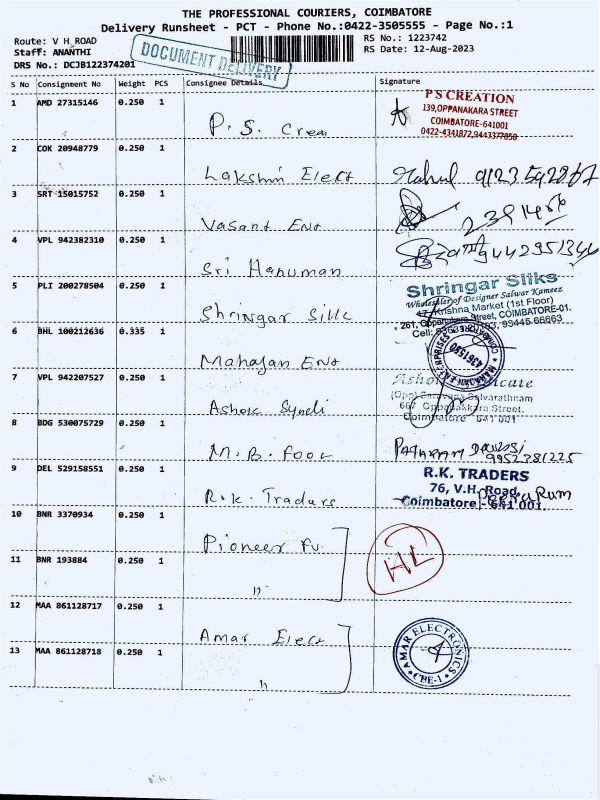 THE PROFESSIONAL COURIERS, COIMBATORE
Delivery Runsheet - PCT - Phone No.:0422-3505555 - Page No.:1
Route: V H_ROAD
RS No.: 1223742
Staff: ANANTHI
RS Date: 12-Aug-2023
DRS No.: DCJB122374201
DOCUMENT DELIVERY
S No Consignment No Weight PCS Consignee Details Signature
1 AMD 27315146 0.250 1
P.S. Crea
P S CREATION
139,OPPANAKARA STREET
COIMBATORE-641001
0422-4341872,9443377050
2 COK 20948779 0.250 1
Lakshmi Elect
Rahul
3 SRT 15015752 0.250 1
Vasant Ent
4 VPL 942382310 0.250 1
Sri Hanuman
5 PLI 200278504 0.250 1
Shringar Silk
Shringar Silks
Wholesaler of Designer Salwar Kameez
Krishna Market (1st Floor)
261, Oppanakara Street, COIMBATORE-01.
Cell: 99445 66663
6 BHL 100212636 0.335 1
Mahajan Ent
MAHAJAN ENTERPRISES
COIMBATORE
4361590
7 VPL 942207527 0.250 1
Ashok Syndi
(Opp) Saravana Selvarathnam
667 Oppanakkara Street,
Coimbatore 641 001
8 BDG 530075729 0.250 1
M.B. Foot
9952381225
9 DEL 529158551 0.250 1
R.K. Traders
R.K. TRADERS
76, V.H. Road,
Coimbatore - 641 001.
10 BNR 3370934 0.250 1
Pioneer Fu.
11 BNR 193884 0.250 1
"
HL
12 MAA 861128717 0.250 1
Amar Elect
13 MAA 861128718 0.250 1
"
AMAR ELECTRONICS
CBE-1